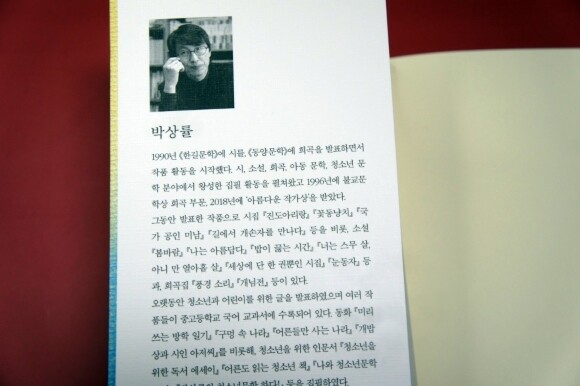 박상률
1990년 《한길문학》에 시를, 《동양문학》에 희곡을 발표하면서
작품 활동을 시작했다. 시, 소설, 희곡, 아동 문학, 청소년 문
학 분야에서 왕성한 집필 활동을 펼쳐왔고 1996년에 불교문
학상 희곡 부문, 2018년에 '아름다운 작가상'을 받았다.
그동안 발표한 작품으로 시집 『진도아리랑』 『꽃동냥치』 『국
가 공인 미남』 『길에서 개손자를 만나다』 등을 비롯, 소설
『봄바람』 『나는 아름답다』 『밥이 끓는 시간』 『너는 스무 살,
아니 만 열아홉 살』 『세상에 단 한 권뿐인 시집』 『눈동자』 등
과, 희곡집 『풍경 소리』 『개님전』 등이 있다.
오랫동안 청소년과 어린이를 위한 글을 발표하였으며 여러 작
품들이 중고등학교 국어 교과서에 수록되어 있다. 동화 『미리
쓰는 방학 일기』 『구멍 속 나라』 『어른들만 사는 나라』 『개밥
상과 시인 아저씨』를 비롯해, 청소년을 위한 인문서 『청소년을
위한 독서 에세이』 『어른도 읽는 청소년 책』 『나와 청소년문학
청소년문학 하다』 등을 집필하였다.